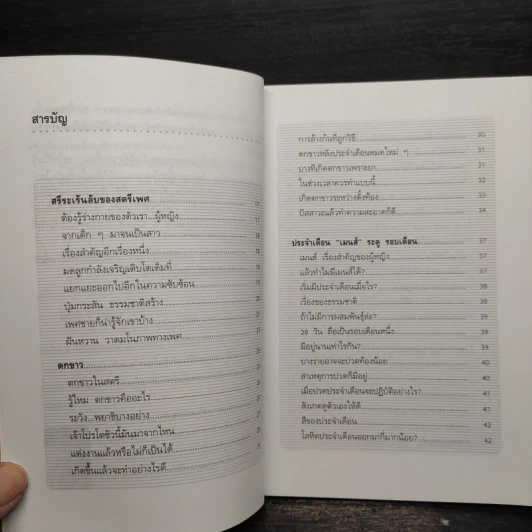 สารบัญ
สรีระเร้นลับของสตรีเพศ 17
ต้องรู้ร่างกายของตัวเรา...ผู้หญิง
จากเด็ก ๆ มาจนเป็นสาว
เรื่องสำคัญอีกเรื่องหนึ่ง
มดลูกกำลังเจริญเติบโตเต็มที่
แยกแยะออกไปอีกในความซับซ้อน
ปุ่มกระสัน ธรรมชาติสร้าง
เพศชายก็น่ารู้จักเขาบ้าง
ฝันหวาน วาดมโนภาพทางเพศ
ตกขาว
ตกขาวในสตรี
รู้ไหม ตกขาวคืออะไร
ระวัง...พยาธิบางอย่าง
เจ้าโปรโตซัวนี้มันมาจากไหน
แต่งงานแล้วหรือไม่ก็เป็นได้
เกิดขึ้นแล้วจะทำอย่างไรดี
การล้างก้นที่ถูกวิธี 30
ตกขาวหลังประจำเดือนหมดใหม่ ๆ 31
บางทีเกิดตกขาวเพราะยา 31
ในช่วงเวลาควรทำแบบนี้
เกิดตกขาวระหว่างตั้งท้อง
ปัสสาวะแล้วทำความสะอาดก็ดี 34
ประจำเดือน "เมนส์" ระดู รอบเดือน 37
เมนส์ เรื่องสำคัญของผู้หญิง 37
แล้วทำไมมีเมนส์ได้? 38
เริ่มมีประจำเดือนเมื่อไร? 38
เรื่องของธรรมชาติ 38
ถ้าไม่มีการผสมพันธุ์ล่ะ? 39
28 วัน ถือเป็นรอบเดือนหนึ่ง 39
มีอยู่นานเท่าไรกัน? 39
บางรายอาจจะปวดท้องน้อย 40
สาเหตุการปวดก็มีอยู่ 40
เมื่อปวดประจำเดือนจะปฏิบัติอย่างไร? 41
สังเกตดูตัวเองให้ดี 41
สีของประจำเดือน 42
โลหิตประจำเดือนออกมากี่มากน้อย? 42